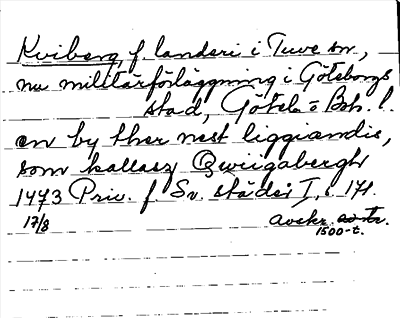 Kviberg f. landeri i Tuve sn,
nu militärförläggning i Göteborgs
stad, Göteb. o Boh. l.
en by ther nest liggiandis,
som kallasz Qwiigabergh
1473 Priv. f Sv. städer I, s. 171.
17/8 avskr.
1500-t.